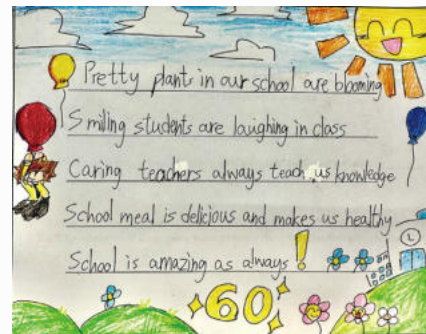 Pretty plants in our school are blooming
Smiling students are laughing in class
Caring teachers always teach us knowledge
School meal is delicious and makes us healthy
School is amazing as always!
L
60